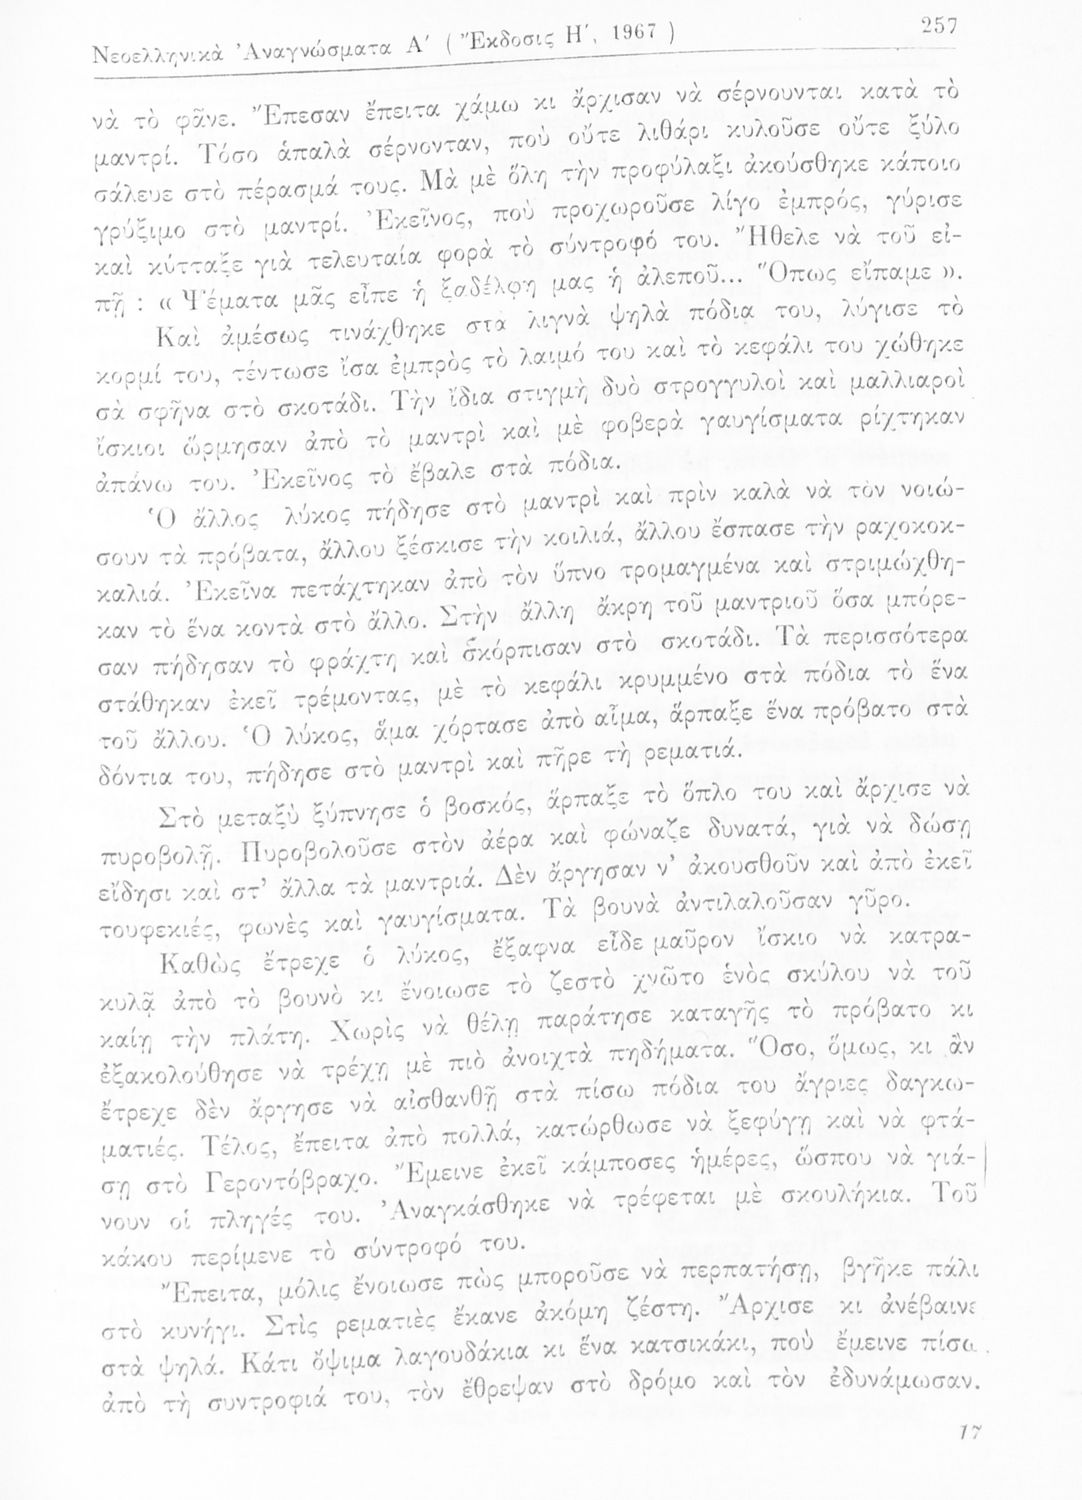 Νεοελληνικὰ Ἀναγνώσματα Α΄ ( Ἔκδοσις Η΄, 1967 ) 257
νὰ τὸ φᾶνε. Ἔπεσαν ἔπειτα χάμω κι ἄρχισαν νὰ σέρνουνται κατὰ τὸ
μαντρί. Τόσο ἁπαλὰ σέρνονταν, ποὺ οὔτε λιθάρι κυλοῦσε οὔτε ξύλο
σάλευε στὸ πέρασμά τους. Μὰ μὲ ὅλη τὴν προφύλαξι ἀκούσθηκε κάποιο
γρύξιμο στὸ μαντρί. Ἐκεῖνος, ποὺ προχωροῦσε λίγο ἐμπρός, γύρισε
καὶ κύτταξε γιὰ τελευταία φορὰ τὸ σύντροφό του. Ἤθελε νὰ τοῦ εἰ-
πῇ : « Ψέματα μᾶς εἶπε ἡ ξαδέλφη μας ἡ ἀλεποῦ... Ὅπως εἴπαμε ».
Καὶ ἀμέσως τινάχθηκε στὰ λιγνὰ ψηλὰ πόδια του, λύγισε τὸ
κορμί του, τέντωσε ἴσα ἐμπρὸς τὸ λαιμό του καὶ τὸ κεφάλι του χώθηκε
σὰ σφῆνα στὸ σκοτάδι. Τὴν ἴδια στιγμὴ δυὸ στρογγυλοὶ καὶ μαλλιαροὶ
ἴσκιοι ὥρμησαν ἀπὸ τὸ μαντρὶ καὶ μὲ φοβερὰ γαυγίσματα ρίχτηκαν
ἀπάνω του. Ἐκεῖνος τὸ ἔβαλε στὰ πόδια.
Ὁ ἄλλος λύκος πήδησε στὸ μαντρὶ καὶ πρὶν καλὰ νὰ τὸν νοιώ-
σουν τὰ πρόβατα, ἄλλου ξέσκισε τὴν κοιλιά, ἄλλου ἔσπασε τὴν ραχοκοκ-
καλιά. Ἐκεῖνα πετάχτηκαν ἀπὸ τὸν ὕπνο τρομαγμένα καὶ στριμώχθη-
καν τὸ ἕνα κοντὰ στὸ ἄλλο. Στὴν ἄλλη ἄκρη τοῦ μαντριοῦ ὅσα μπόρε-
σαν πήδησαν τὸ φράχτη καὶ σκόρπισαν στὸ σκοτάδι. Τὰ περισσότερα
στάθηκαν ἐκεῖ τρέμοντας, μὲ τὸ κεφάλι κρυμμένο στὰ πόδια τὸ ἕνα
τοῦ ἄλλου. Ὁ λύκος, ἅμα χόρτασε ἀπὸ αἷμα, ἅρπαξε ἕνα πρόβατο στὰ
δόντια του, πήδησε στὸ μαντρὶ καὶ πῆρε τὴ ρεματιά.
Στὸ μεταξὺ ξύπνησε ὁ βοσκός, ἅρπαξε τὸ ὅπλο του καὶ ἄρχισε νὰ
πυροβολῇ. Πυροβολοῦσε στὸν ἀέρα καὶ φώναζε δυνατά, γιὰ νὰ δώσῃ
εἴδησι καὶ στ’ ἄλλα τὰ μαντριά. Δὲν ἄργησαν ν’ ἀκουσθοῦν καὶ ἀπὸ ἐκεῖ
τουφεκιές, φωνὲς καὶ γαυγίσματα. Τὰ βουνὰ ἀντιλαλοῦσαν γῦρο.
Καθὼς ἔτρεχε ὁ λύκος, ἔξαφνα εἶδε μαῦρον ἴσκιο νὰ κατρα-
κυλᾷ ἀπὸ τὸ βουνὸ κι ἔνοιωσε τὸ ζεστὸ χνῶτο ἑνὸς σκύλου νὰ τοῦ
καίῃ τὴν πλάτη. Χωρὶς νὰ θέλῃ παράτησε καταγῆς τὸ πρόβατο κι
ἐξακολούθησε νὰ τρέχῃ μὲ πιὸ ἀνοιχτὰ πηδήματα. Ὅσο, ὅμως, κι ἂν
ἔτρεχε δὲν ἄργησε νὰ αἰσθανθῇ στὰ πίσω πόδια του ἄγριες δαγκω-
ματιές. Τέλος, ἔπειτα ἀπὸ πολλά, κατώρθωσε νὰ ξεφύγῃ καὶ νὰ φτά-
σῃ στὸ Γεροντόβραχο. Ἔμεινε ἐκεῖ κάμποσες ἡμέρες, ὥσπου νὰ γιά-
νουν οἱ πληγές του. Ἀναγκάσθηκε νὰ τρέφεται μὲ σκουλήκια. Τοῦ
κάκου περίμενε τὸ σύντροφό του.
Ἔπειτα, μόλις ἔνοιωσε πὼς μποροῦσε νὰ περπατήσῃ, βγῆκε πάλι
στὸ κυνήγι. Στὶς ρεματιὲς ἔκανε ἀκόμη ζέστη. Ἄρχισε κι ἀνέβαινε
στὰ ψηλά. Κάτι ὄψιμα λαγουδάκια κι ἕνα κατσικάκι, ποὺ ἔμεινε πίσω
ἀπὸ τὴ συντροφιά του, τὸν ἔθρεψαν στὸ δρόμο καὶ τὸν ἐδυνάμωσαν.
17